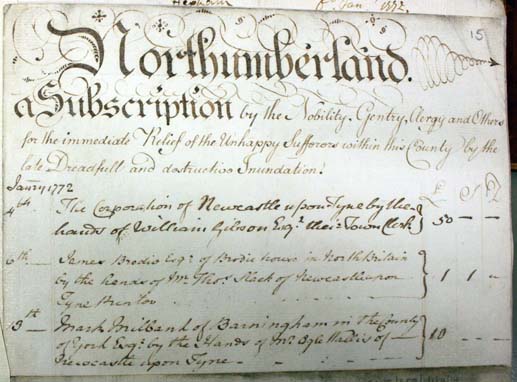 Hexham 6 Jan 1772
15
Northumberland.
a Subscription by the Nobility, Gentry, Clergy and Others
for the immediate Relief of the Unhappy Sufferors within this County by the
late Dreadfull and destructive Inundation!
Janry 1772
£ S D
4th The Corporation of Newcastle upon Tyne by the
hands of William Gibson Esqr. their Town Clerk } 50 — —
6th — James Brodie Esqr. of Brodie house in North Britain
by the hands of Mr Thos. Slack of Newcastle upon } 1 1 —
Tyne Printer
13th — Mark Milbank of Barningham in the County
of York Esqr. by the Hands of Mr. Ogle Wallis of — } 10 — —
Newcastle upon Tyne —